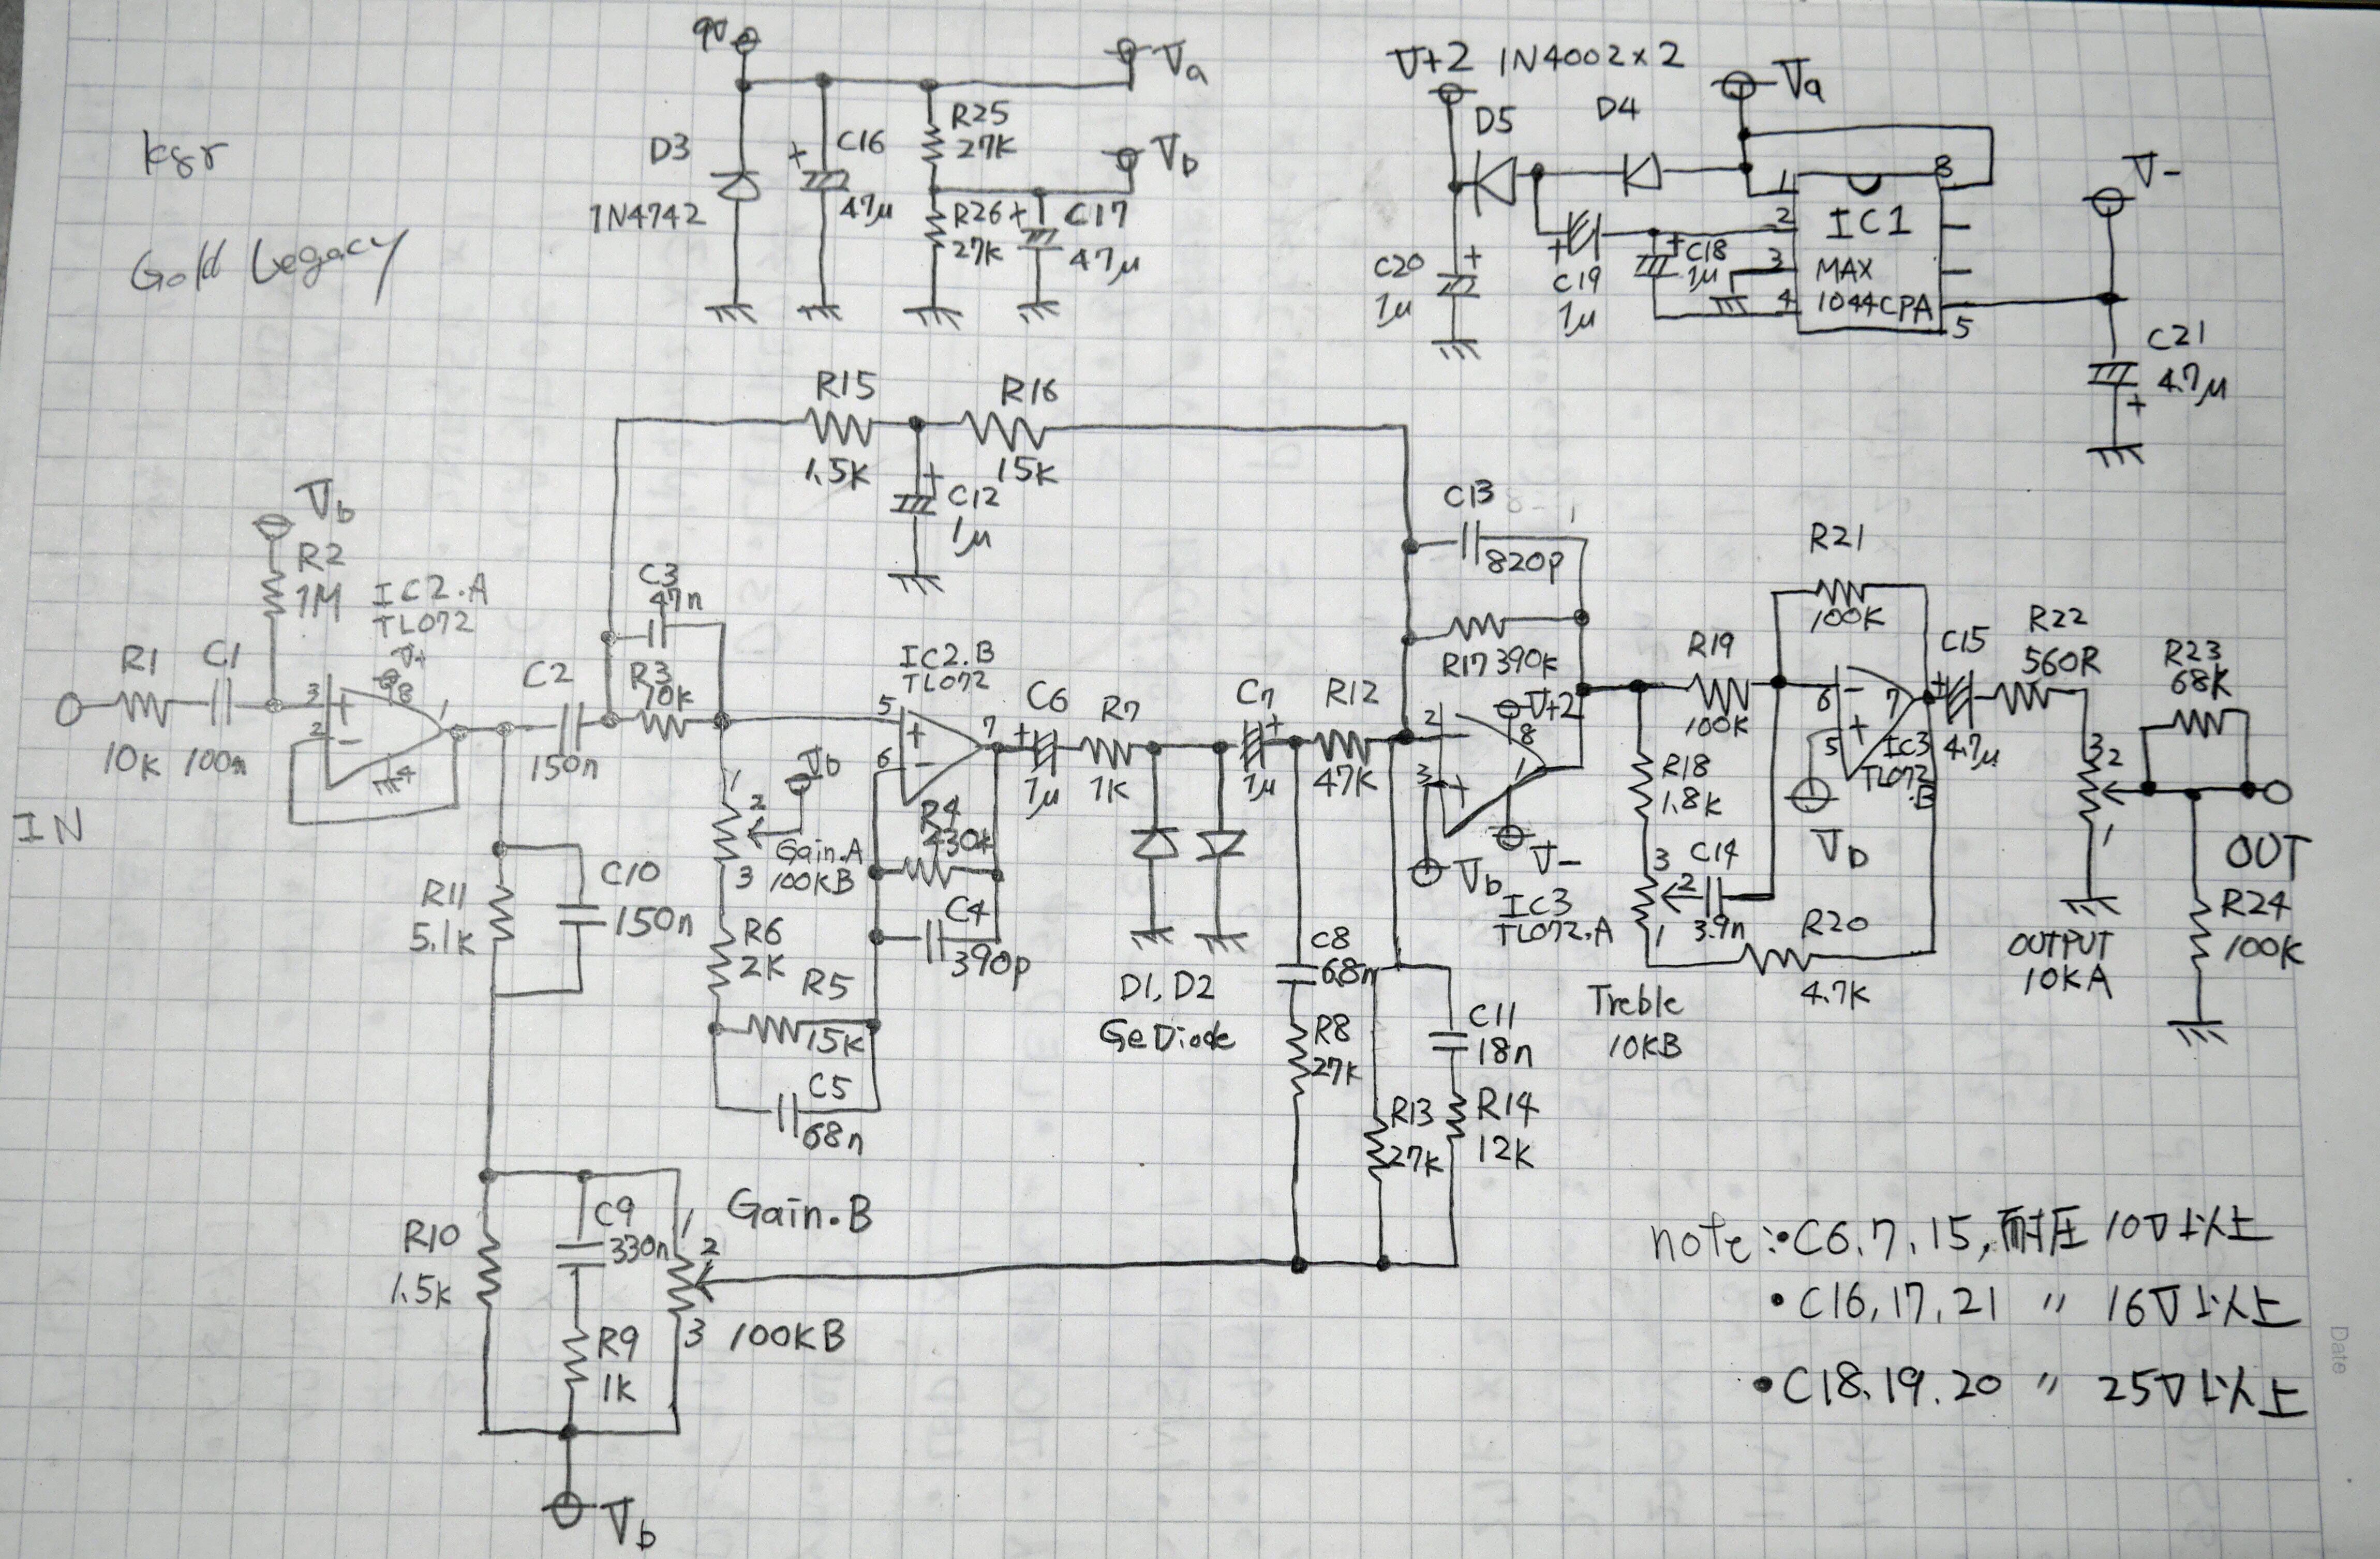 9V
Va
V+2 1N4002×2
Va
D5
D4
R25
27K
D3
1N4742
+ C16
47μ
Vb
R26 + C17
27K
47μ
V-
1
8
2
IC1
3
MAX
4
1044CPA
5
C20 +
1μ
+ C19
1μ
+ C18
1μ
C21
4.7μ
+
ksr
Gold Legacy
R15
1.5K
R16
15K
+ C12
1μ
C13
820p
R17 390k
Vb
R2
1M
IC2.A
TL072
V+
8
R1
10K
C1
100n
3 +
2 -
1
4
IN
C2
150n
C3
47n
R3
10k
IC2.B
TL072
5 +
6 -
7
+ C6
1μ
R7
1K
C7 +
1μ
R12
47K
2 -
3 +
V+2
8
1
Vb
V-
IC3
TL072.A
R19
100K
R21
100K
R18
1.8k
6 -
5 +
7
IC3
TL072
.B
Vb
+ C15
4.7μ
R22
560R
R23
68K
3
2
1
OUT
R24
100K
OUTPUT
10KA
1
2
3
Vb
Gain.A
100KB
R4
430k
C4
390p
R6
2K
R5
15K
C5
68n
R11
5.1k
C10
150n
D1, D2
Ge Diode
C8
68n
R8
27K
C11
18n
R13
27K
R14
12K
3
2
1
C14
3.9n
R20
4.7K
Treble
10KB
R10
1.5k
C9
330n
R9
1K
1
2
3
Gain.B
100KB
Vb
note:・C6.7.15,耐圧 10V以上
・C16,17,21 〃 16V以上
・C18.19.20 〃 25V以上
Date